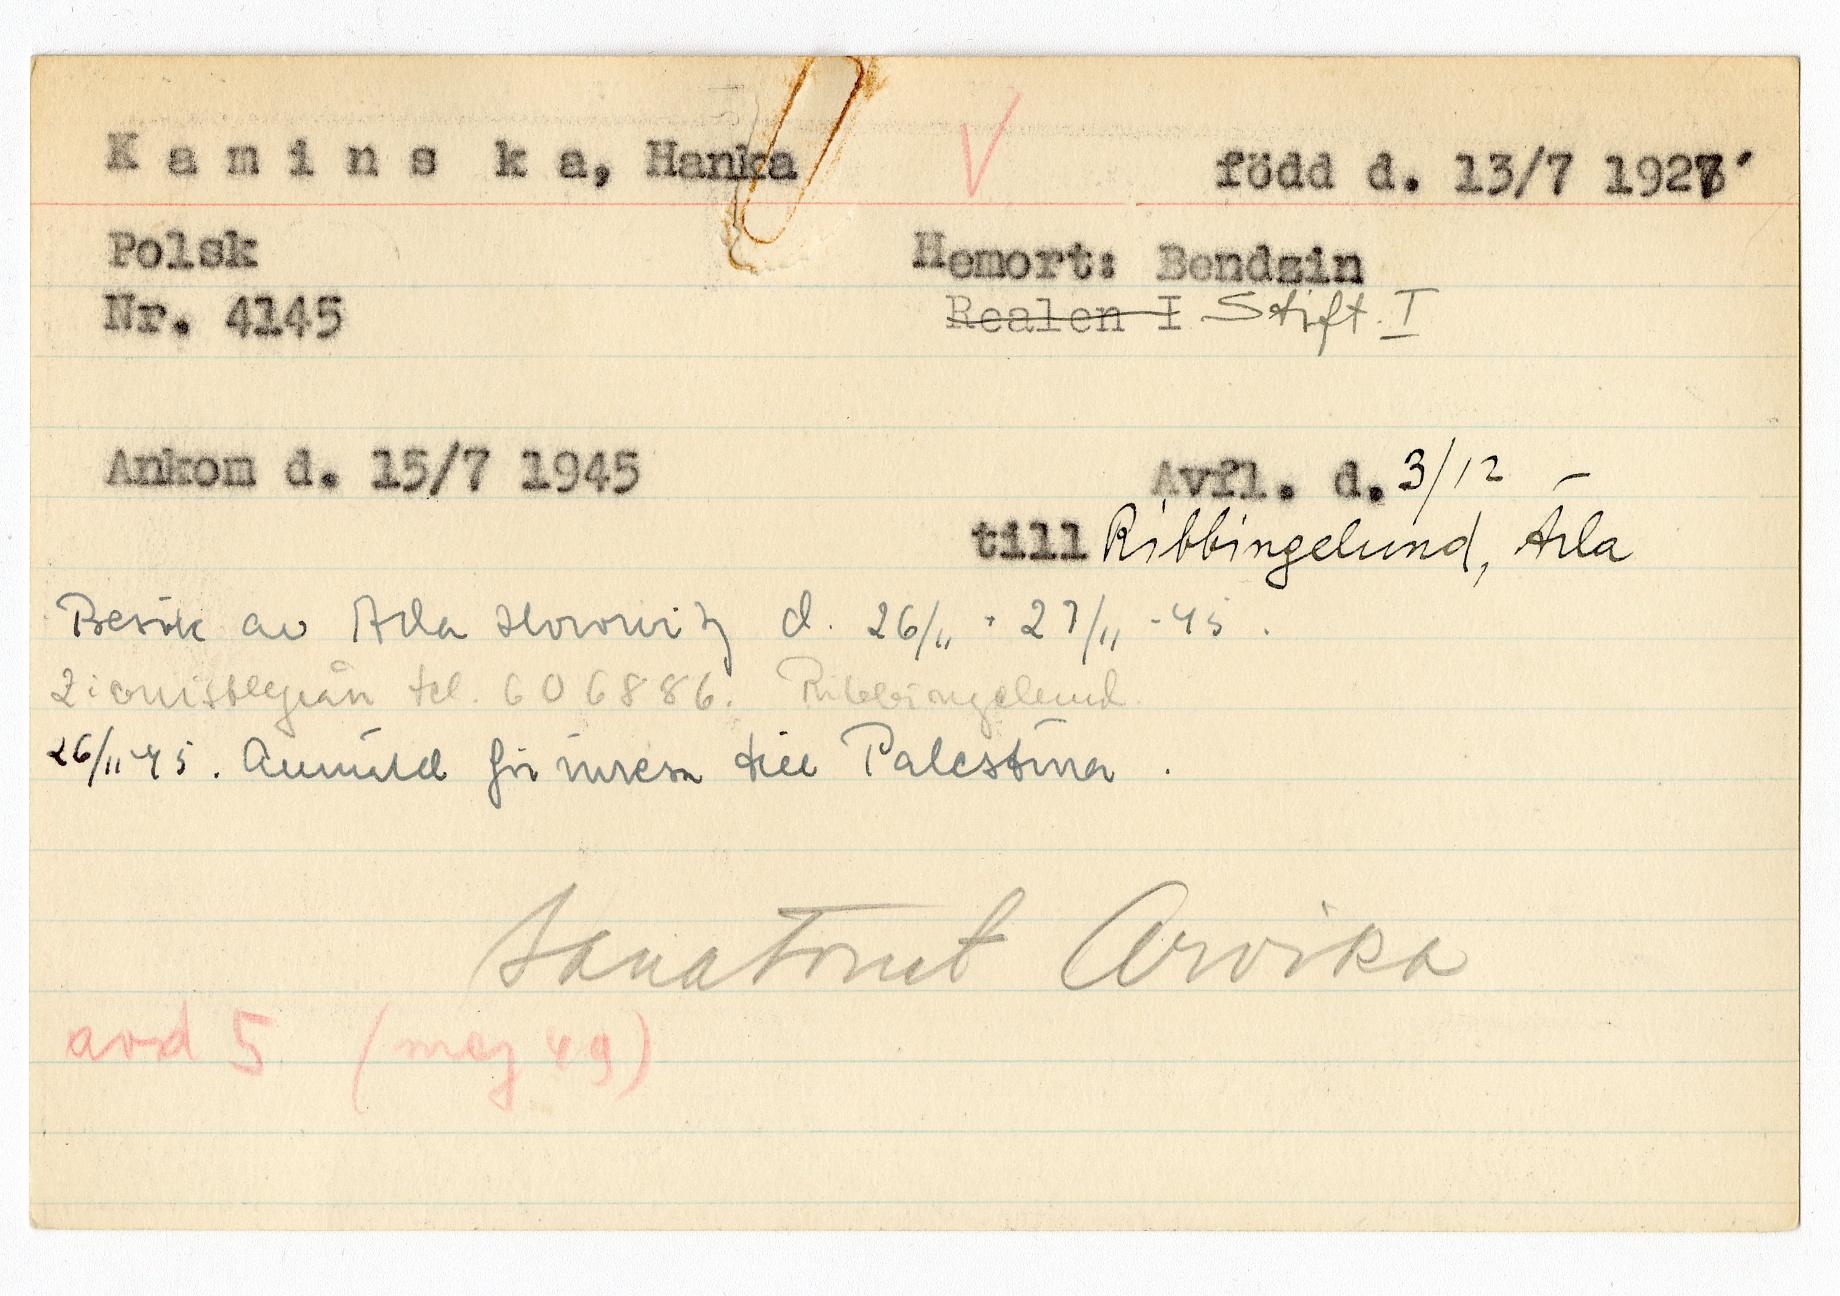 K a m i n s k a, Hanka V född d. 13/7 1927
Polsk Hemort: Bendzin
Nr. 4145 Realen I Stift. I
Ankom d. 15/7 1945 Avfl. d. 3/12 -
till Ribbingelund, Ärla
Besök av Ada Horowitz d. 26/11 - 27/11 -45.
tel. 606886. Ribbingelund.
26/11 45. Anmäld för inresa till Palestina.
Sanatoriet Arvika
avd 5 (maj 49)